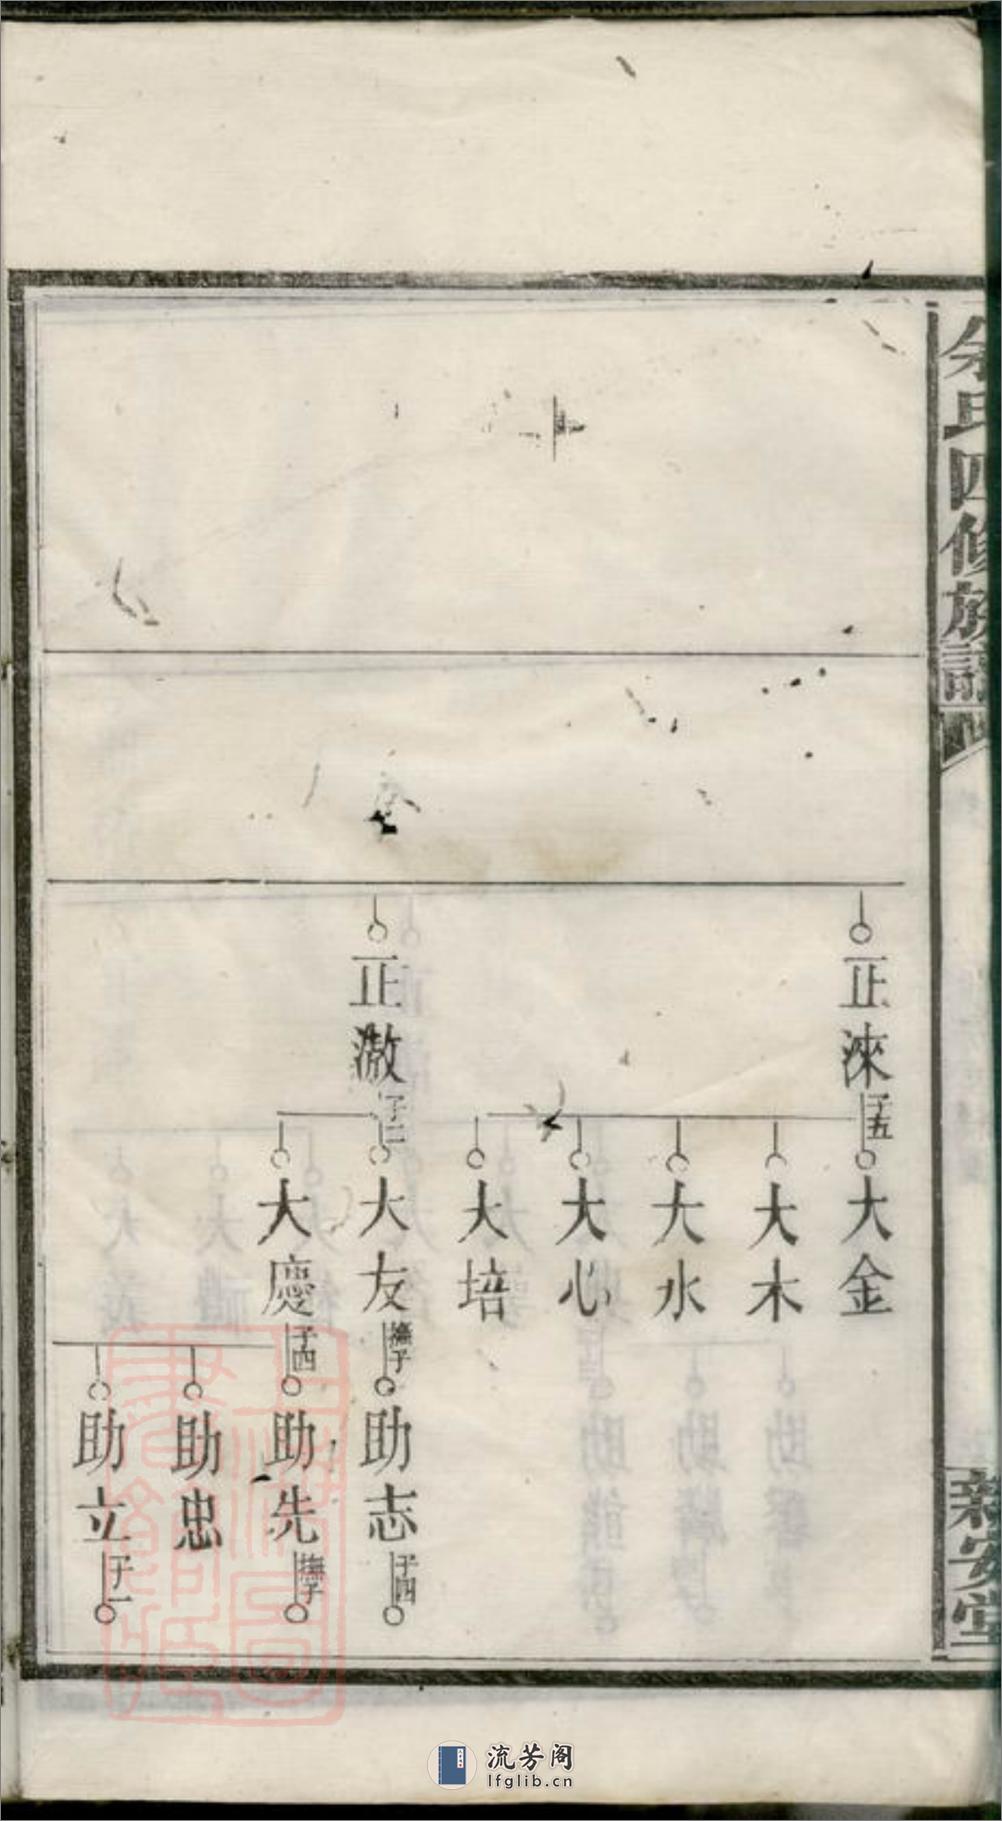 余氏四修族譜
新安堂
正淶
子五
正激
子二
大金
大木
大水
大心
大培
大友
撫子
大慶
子四
助志
子四
助先
撫子
助忠
助立
子一
流芳阁
lfglib.cn